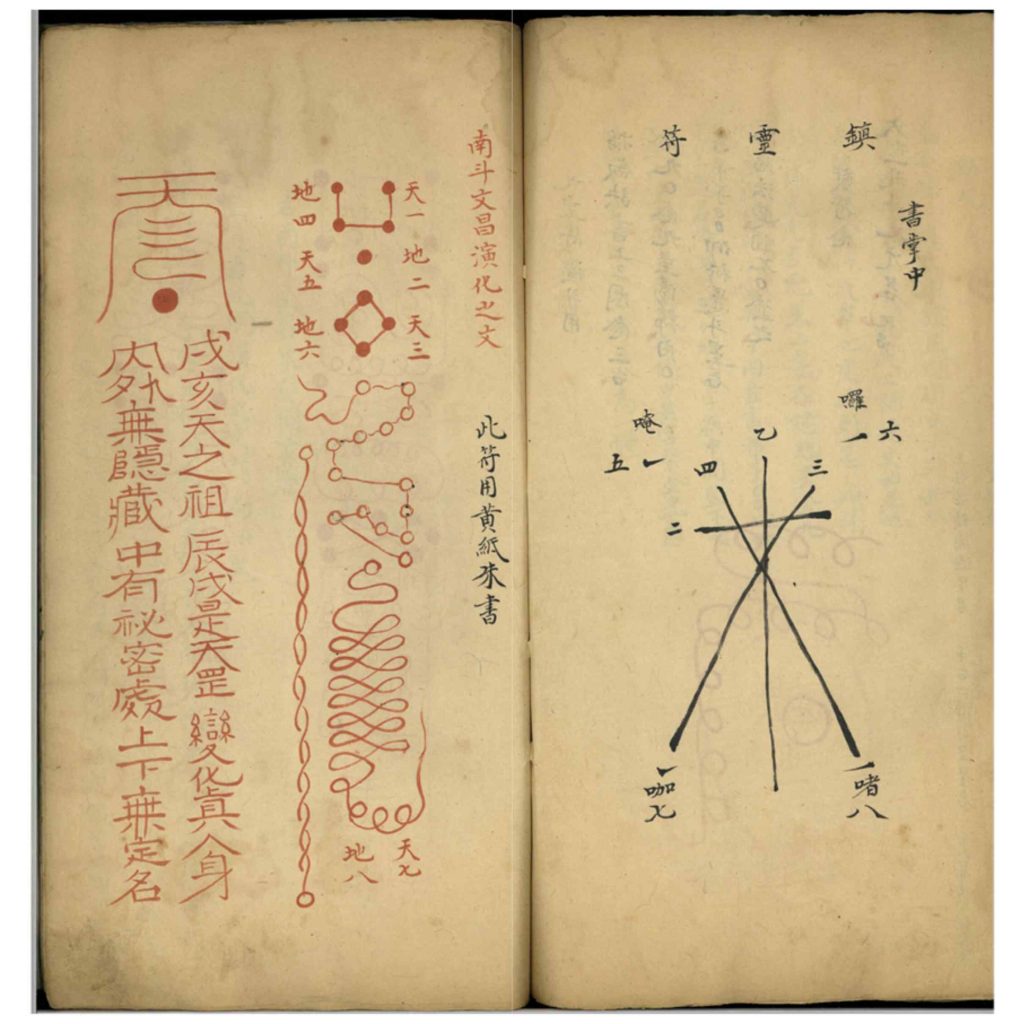 鎮靈符
書掌中
囉
六
唵
五
四
乙
三
二
咖七
啫八
南斗文昌演化之文
此符用黃紙硃書
天一
地二
天三
地四
天五
地六
天七
地八
戌亥天之祖 辰戌是天罡 變化真人身
內外無隱藏 中有祕密處 上下無定名